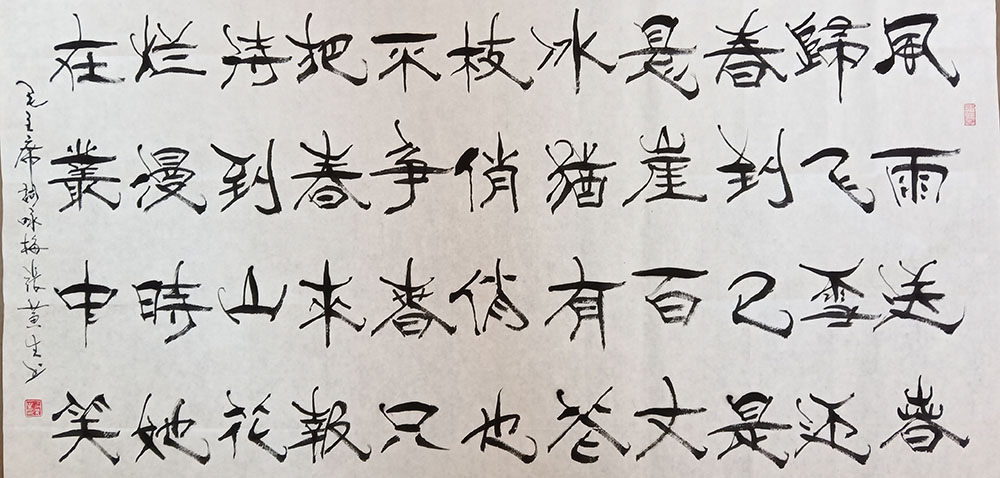 風雨送春
歸飞雪还
春到已是
悬崖百丈
冰猶有花
枝俏俏也
不争春只
把春來報
待到山花
烂漫時她
在叢中笑
毛主席詞咏梅張黄生书